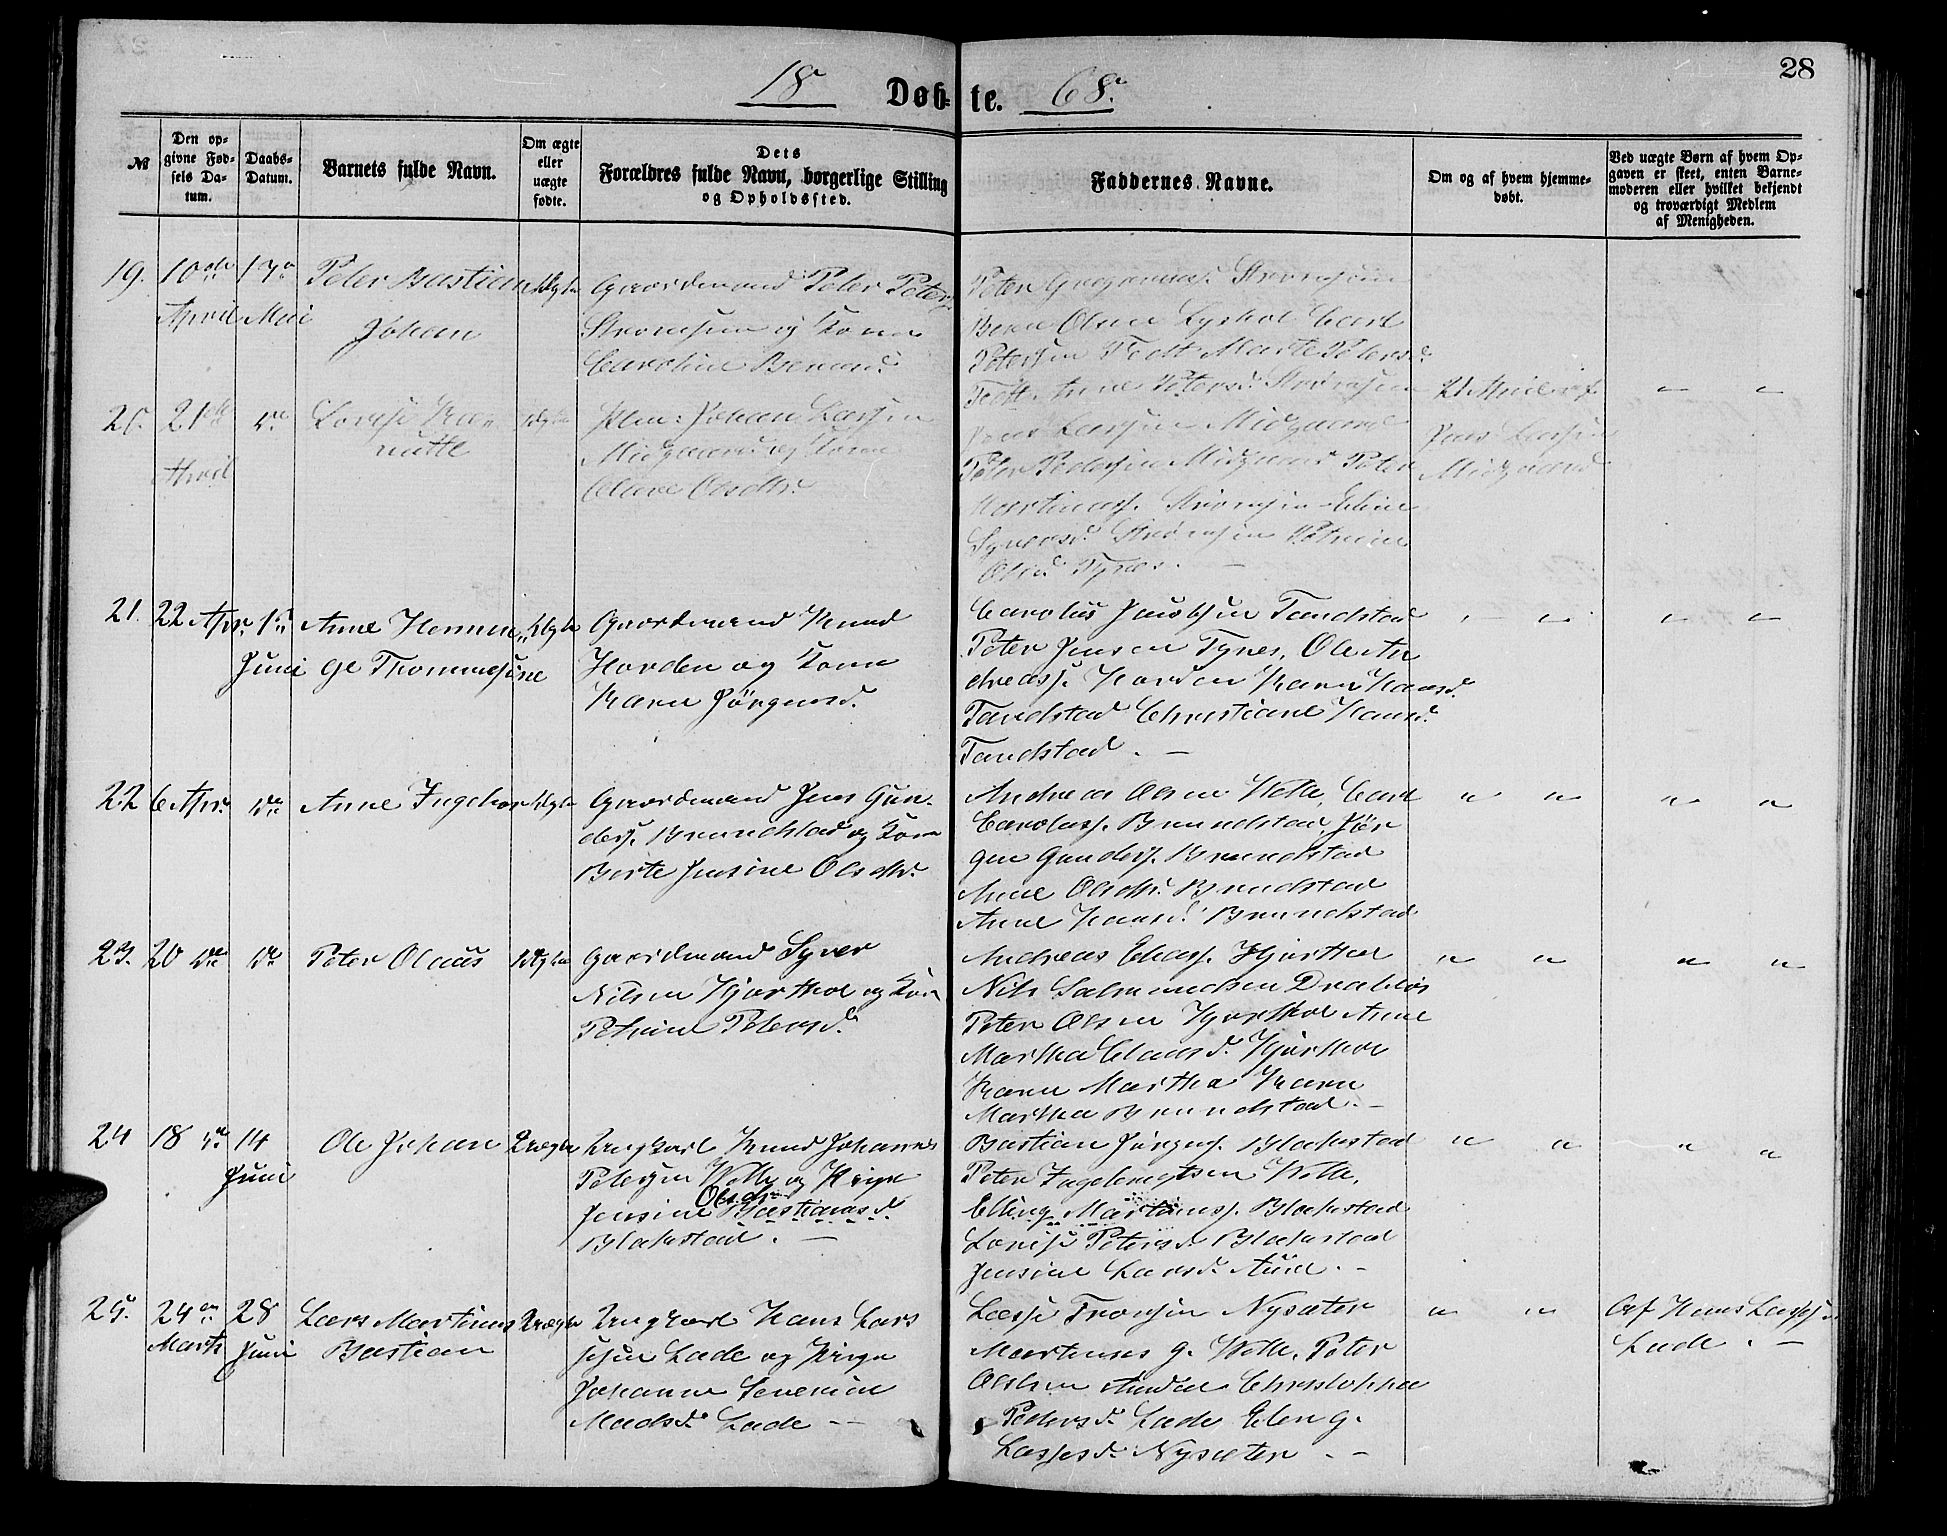 28
18 Døbte. 68.
№
Den opgivne Fødsels Datum.
Daabs-Datum.
Barnets fulde Navn.
Om ægte eller uægte fødte.
Dets Forældres fulde Navn, borgerlige Stilling og Opholdssted.
Faddernes Navne.
Om og af hvem hjemmedøbt.
Ved uægte Børn af hvem Opgaven er skeet, enten Barnemoderen eller hvilket bekjendt og troværdigt Medlem af Menigheden.
19.
10de
April
17
Mai
Peter Bastian
Johan
Ægte
Gaardmand Peter Peters.
Strømsem og Kone
Caroline Berans
Strømsem
Bern Olsen Lyshol Carl
Petersen Tedt Marte Petersd.
Tedt Anne Petersd. Strømsem
21
April
Lovise
Ægte
Johan Larsen
Midgaard og Kone
Olsdtr.
Larsen Midgaard
Peter Pedersen Midgaard Peter
Martinuss. Strømsem Eline
Syversd. Strømsem Petrine
Olsd. Tynes.
21 April af
Jens Larsen
Midgaard
21.
22 Apr.
1
Juni
Anne Hennin
ge Thommesine
Ægte
Gaardmand Knud
Horden og Kone
Karen Jørgensd.
Carolus Jacobsen Tandstad
Peter Jensen Tynes, Ole An
dreass. Horden Karen Hansd.
Tandstad Christiane Hansd.
Tandstad.
22
6 Apr.
do
Anne Ingebor
Ægte
Gaardmand Jens Gun-
ders. Brundstad og Kone
Berte Jensine Olsdtr.
Andreas Olsen Welle, Carl
Caroluss. Brundstad, Jør
gen Gunders. Brundstad
Anne Olsdtr. Brundstad
Anne Hansd. Brundstad
23.
20 do
do
Peter Olaus
Ægte
Gaardmand Syver
Nilsen Hjorthol og Kone
Petrine Petersd.
Andreas Eliass. Hjorthol
Nils Salmundsen Drabløs
Peter Olsen Hjorthol Anne
Martha Clausd. Hjorthol
Karen Martha Karen
Martha Brundstad.
24
18 do
14
Juni
Ole Johan
Uægte
Ungkarl Knud Johannes
Petersen Welle og Pige
Olsdr.
Jensine Bastiansd.
Blakstad.
Bastian Jørgens. Blakstad
Peter Ingebrigtsen Welle,
Elling Martinuss. Blakstad
Lovise Petersd. Blakstad
Jensine Larsd. Aure.
25.
24
Marts
28
Juni
Lars Martinus
Bastian
Uægte
Ungkarl Hans Lars
Lade og Pige
Johanne Severine
Madsd. Lade
Lasse Tronsen Nysæter
Martinus g. Welle, Peter
Christopha
Pedersd. Lade Elen g.
Lassesd. Nysæter
Af Hans Lassesen
Lade.